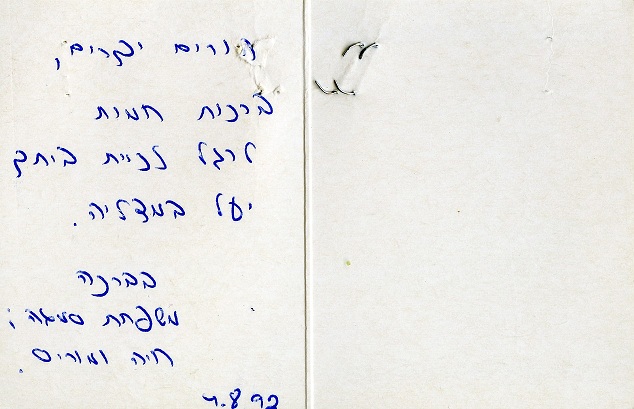 הורים יקרים,
ברכות חמות
לרגל זכיית ביתכם
יעל במדליה.
בברכה
משפחת סמגה;
חיה ומוריס.
4.8 92